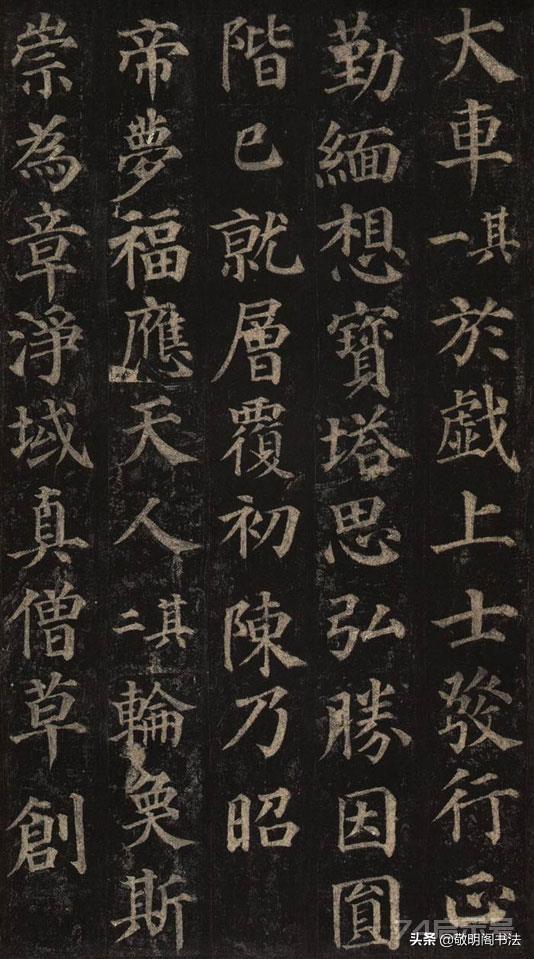 大車其一於戯上士發行正
勤緬想寶塔思弘勝因圎
階已就層覆初陳乃昭
帝夢福應天人其二輪奐斯
崇為章淨域真僧草創
头条 @敬明阁书法